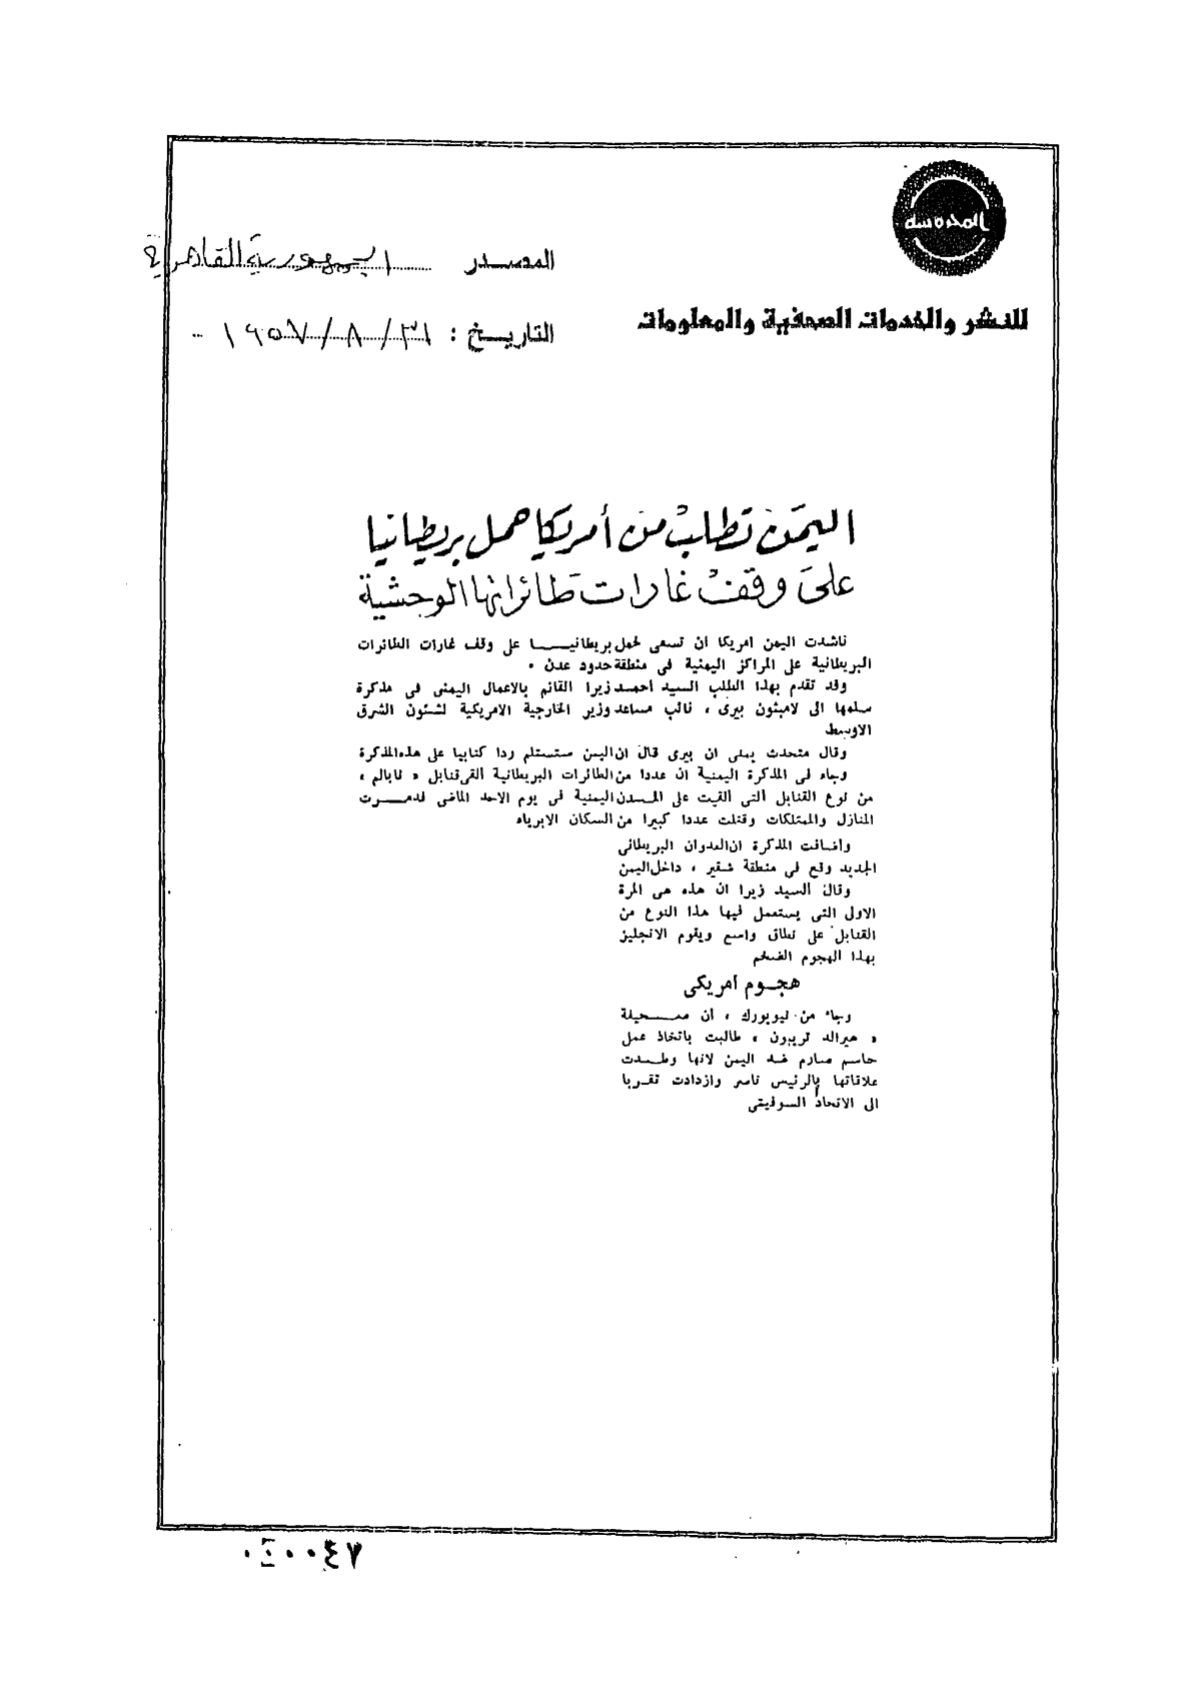 المحروسة
للنشر والخدمات الصحفية والمعلومات
المصدر الجمهورية القاهرية
التاريخ : ٣١/٨/١٩٥٧
اليمن تطلب من أمريكا حمل بريطانيا
على وقف غارات طائراتها الوحشية
ناشدت اليمن امريكا ان تسعى لحمل بريطانيا على وقف غارات الطائرات
البريطانية على المراكز اليمنية فى منطقة حدود عدن .
وقد تقدم بهذا الطلب السيد احمد زيرا القائم بالاعمال اليمنى فى مذكرة
سلمها الى لامبثون بيرى ، نائب مساعد وزير الخارجية الامريكية لشئون الشرق
الاوسط
وقال متحدث يمنى ان بيرى قال ان اليمن ستستلم ردا كتابيا على هذه المذكرة
وجاء فى المذكرة اليمنية ان عددا من الطائرات البريطانية القى قنابل « نابالم »
من نوع القنابل التى القيت على المدن اليمنية فى يوم الاحد الماضى فدمرت
المنازل والممتلكات وقتلت عددا كبيرا من السكان الابرياء
واضافت المذكرة ان العدوان البريطانى
الجديد وقع فى منطقة شقير ، داخل اليمن
وقال السيد زيرا ان هذه هى المرة
الاولى التى يستعمل فيها هذا النوع من
القنابل على نطاق واسع ويقوم الانجليز
بهذا الهجوم الضخم
هجوم أمريكى
وجاء من نيويورك ، ان صحيفة
« هيرالد تريبون » طالبت باتخاذ عمل
حاسم صارم ضد اليمن لانها وطدت
علاقاتها بالرئيس ناصر وازدادت تقربا
الى الاتحاد السوفيتى